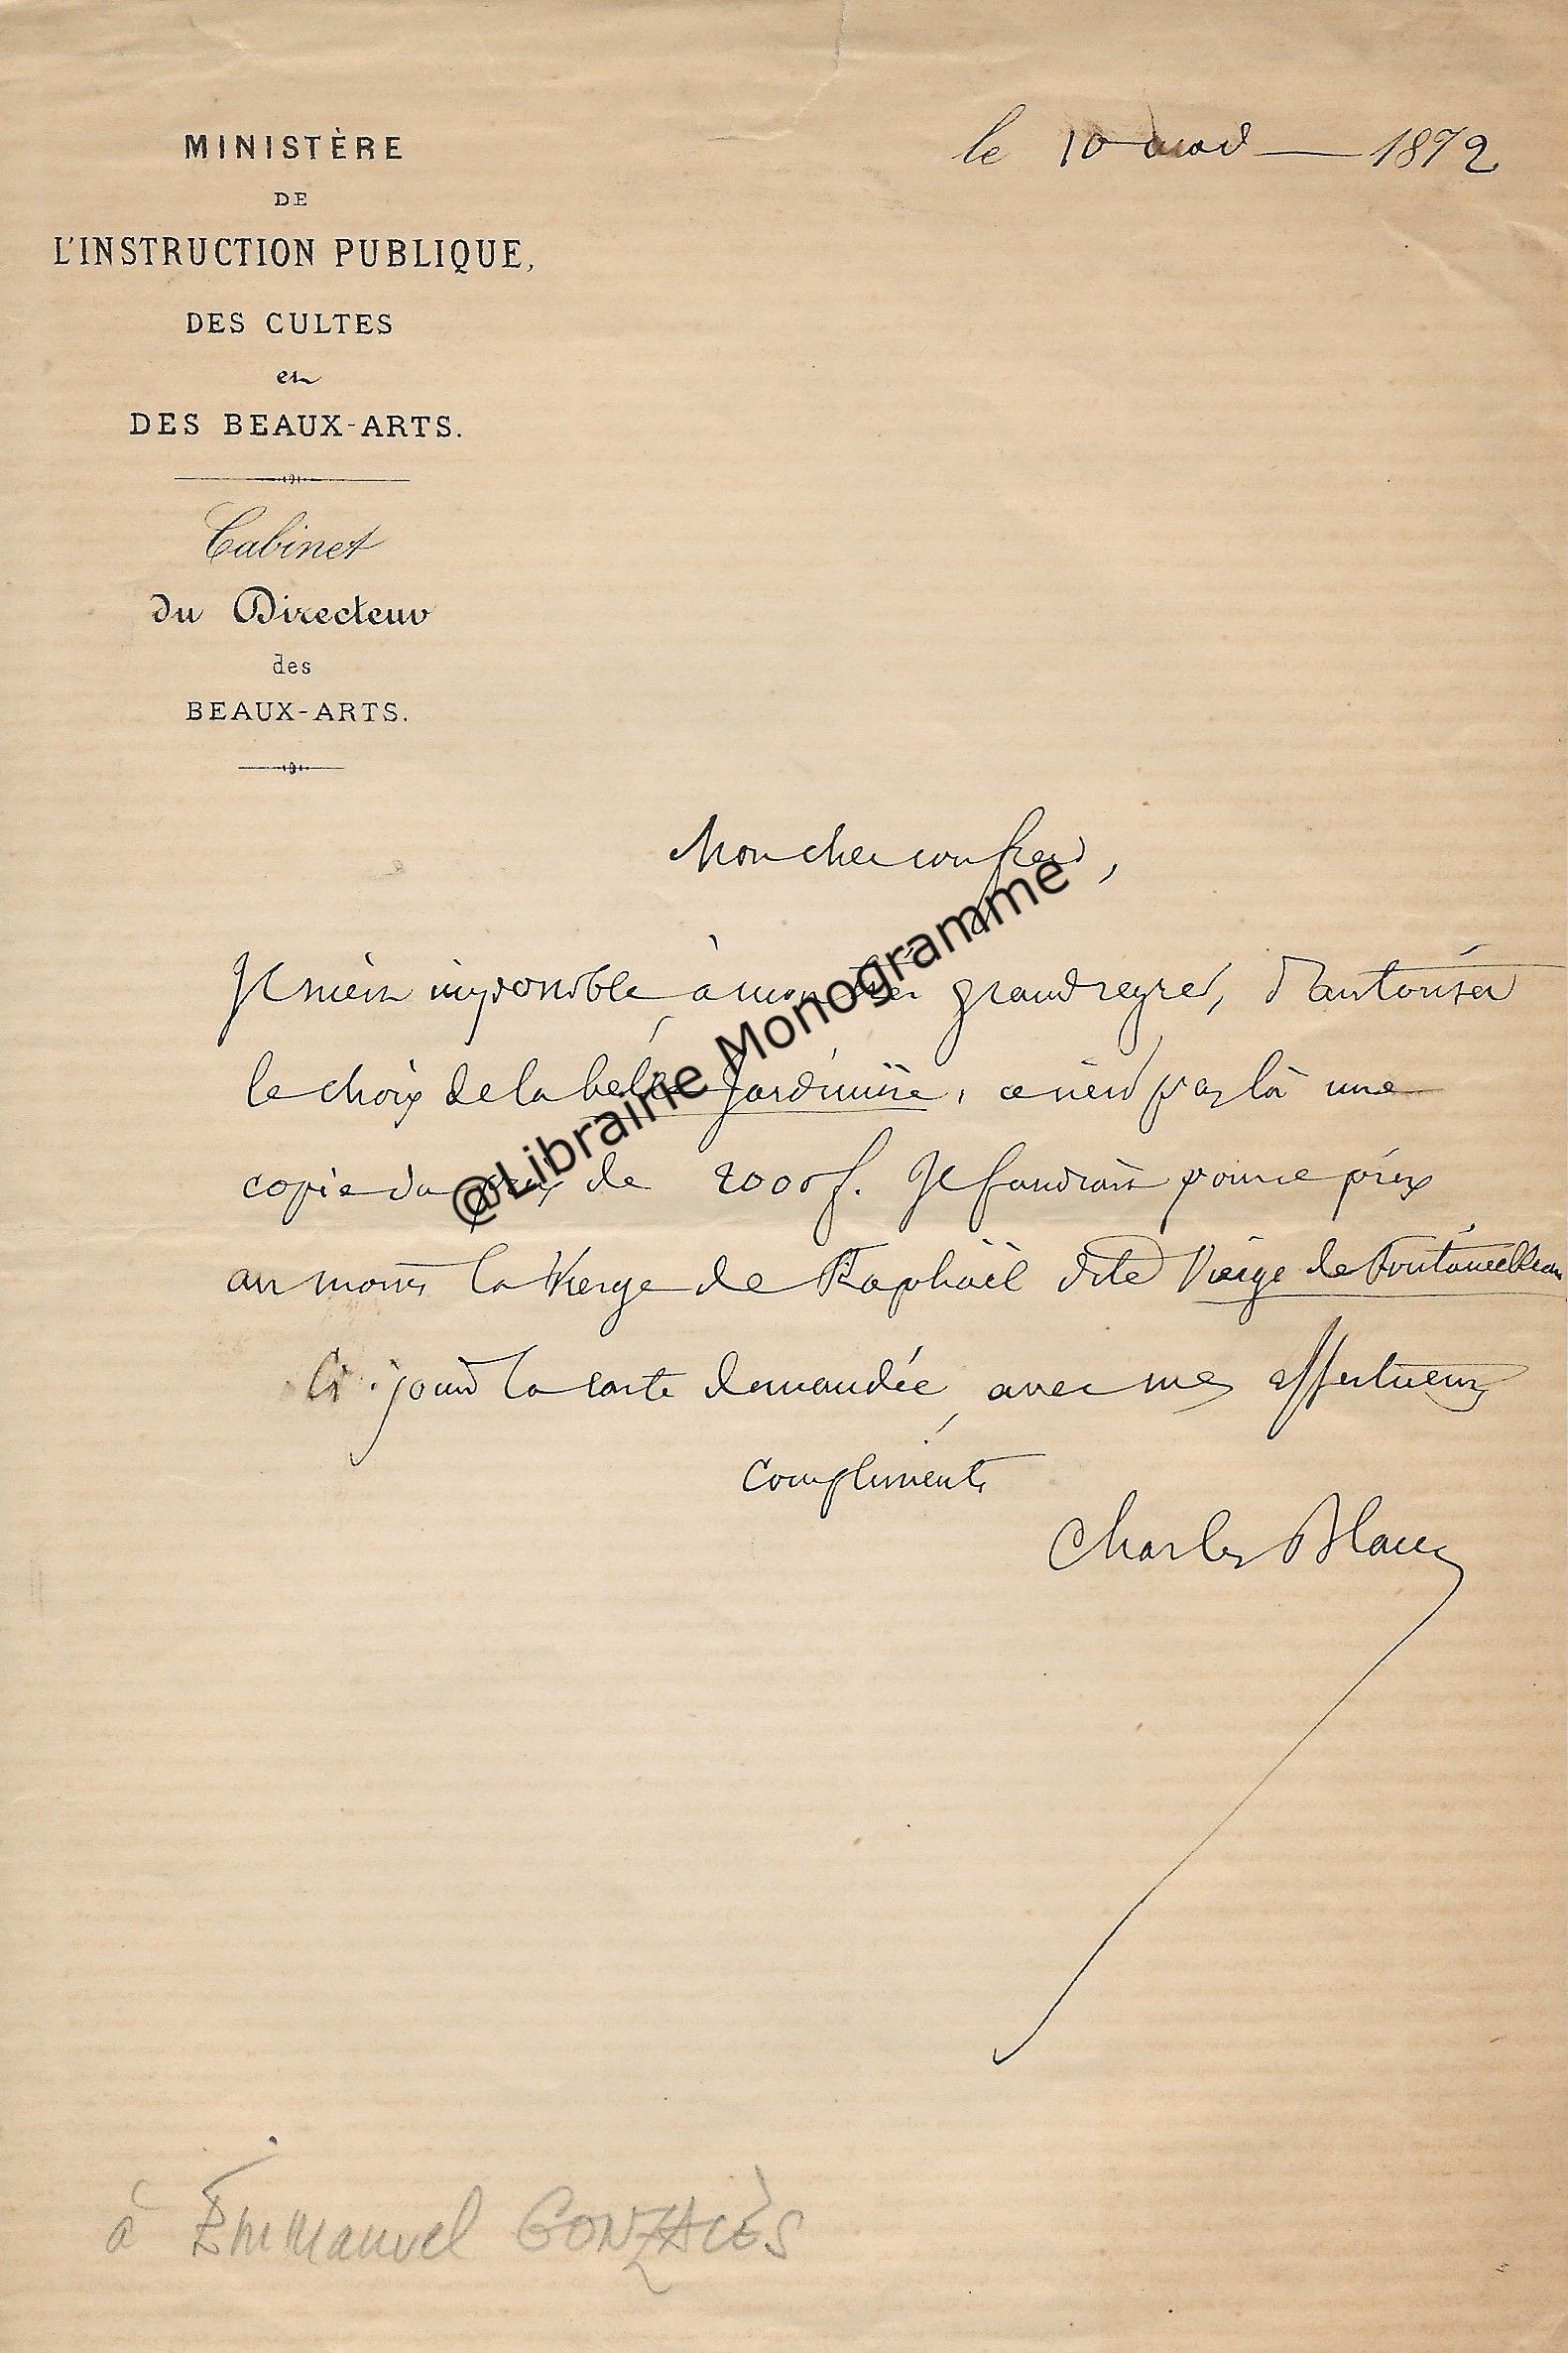 MINISTÈRE
DE
L'INSTRUCTION PUBLIQUE,
DES CULTES
et
DES BEAUX-ARTS.
Cabinet
du Directeur
des
BEAUX-ARTS.
le 10 1872
Mon cher confrère,
Il m'est impossible, à mon très grand regret, d'autoriser
le choix de la belle Jardinière, ce n'est pas là une
copie du prix de 2000 f. Il faudrait pour ce prix
au moins la Vierge de Raphaël dite Vierge de Fontainebleau
Ci-joint la carte demandée, avec mes affectueux
compliments
Charles Blanc
à Emmanuel GONZALÈS
@Librairie Monogramme